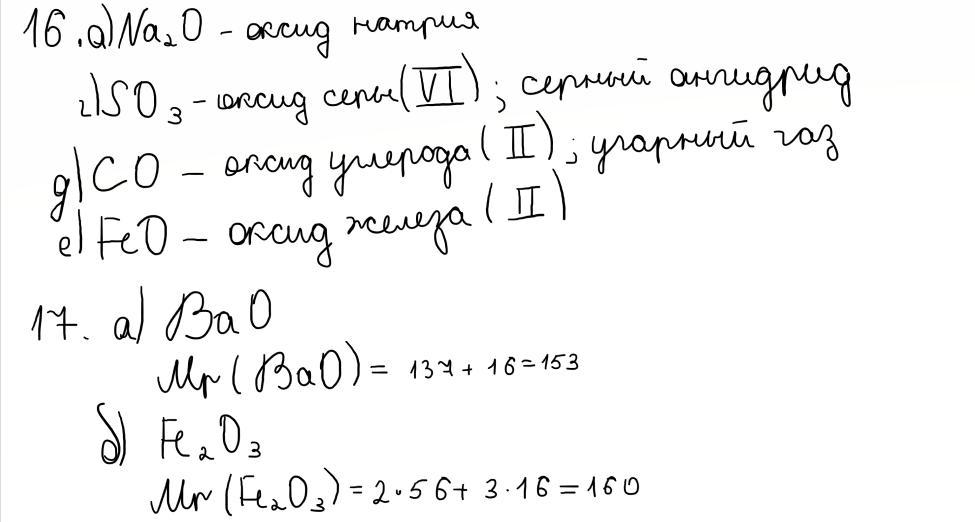 16. а) Na₂O - оксид натрия
г) SO₃ - оксид серы (VI); серный ангидрид
д) CO - оксид углерода (II); угарный газ
е) FeO - оксид железа (II)
17. а) BaO
Mr (BaO) = 137 + 16 = 153
б) Fe₂O₃
Mr (Fe₂O₃) = 2·56 + 3·16 = 160